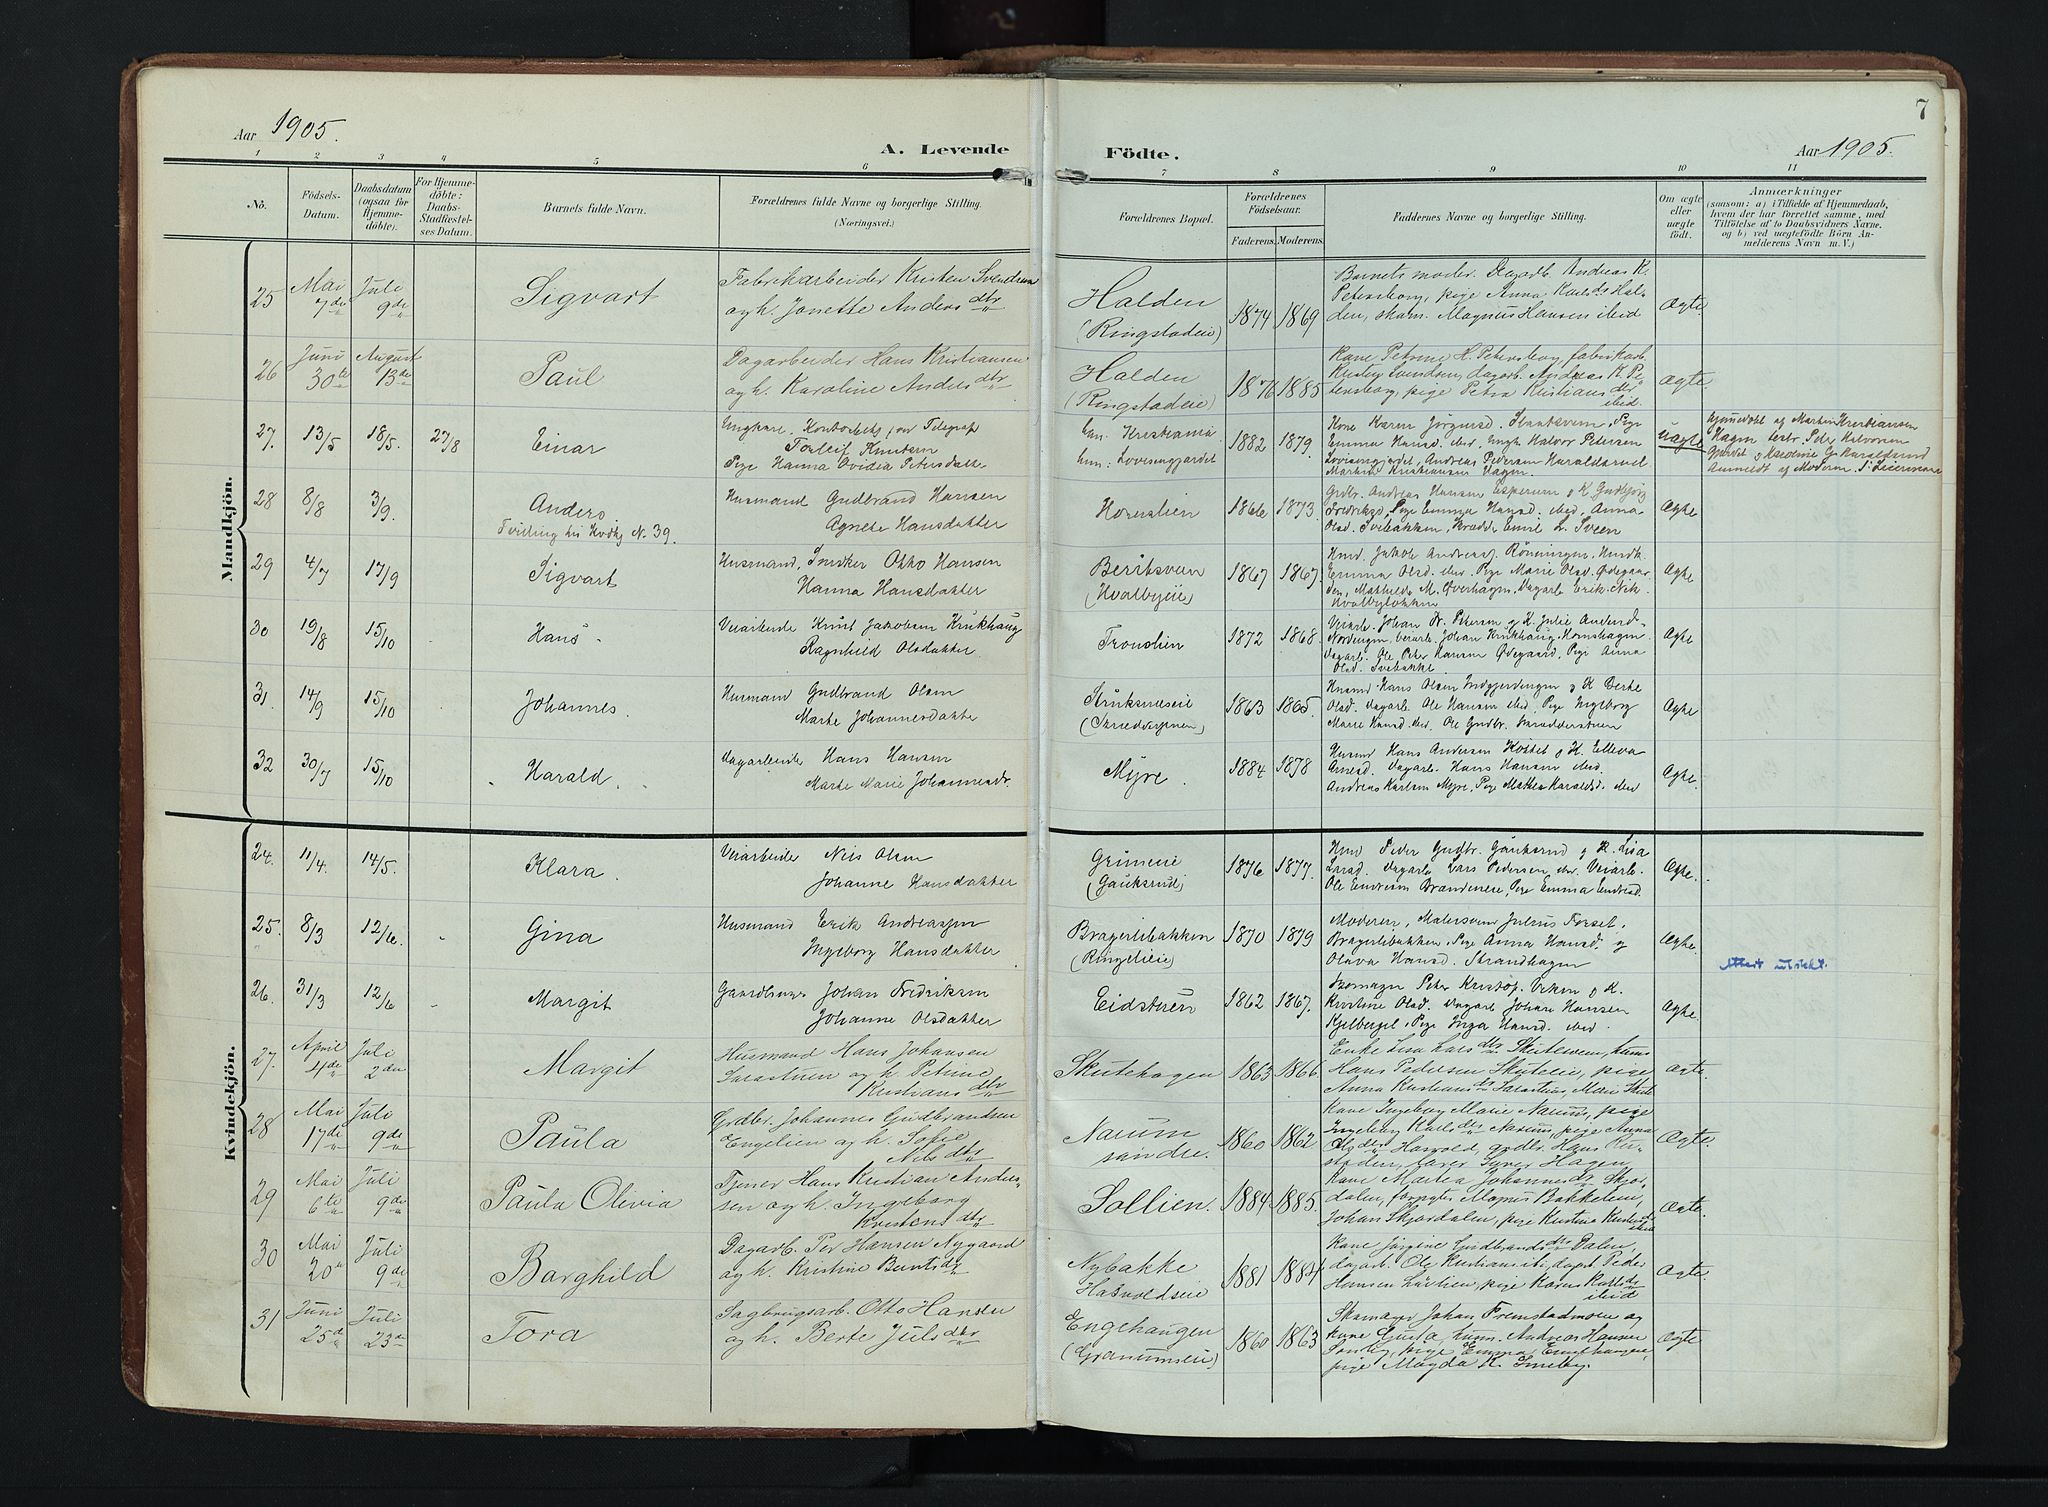 7
Aar 1905.
A. Levende Födte.
Aar 1905.
1 2 3 4 5 6 7 8 9 10 11
No.
Födsels-
Datum.
Daabsdatum
(ogsaa for
Hjemme-
döbte).
For Hjemme-
döbte:
Daabs-
Stadfæstel-
ses Datum.
Barnets fulde Navn.
Forældrenes fulde Navne og borgerlige Stilling.
(Næringsvei.)
Forældrenes Bopæl.
Forældrenes
Födselsaar.
Faderens. Moderens.
Faddernes Navne og borgerlige Stilling.
Om ægte
eller
uægte
födt.
Anmærkninger
(saasom: a) i Tilfælde af Hjemmedaab,
hvem der har forrettet samme, med
Tilföielse af to Daabsvidners Navne,
og b) ved uægtefödte Börn An-
melderens Navn m. V.)
Mandkjön.
25 Mai 7de Juli 9de Sigvart
Fabrikarbeider Kristen Svendsen
og h. Jonette Andersdtr
Halden
(Ringstadeie)
1874 1869
Barnets moder. Dagarb. Andreas K.
Petersborg, pige Anna Karlsd Hal-
den, skom. Magnus Hansen ibid
Ægte.
26 Juni 30te August 13de Paul
Dagarbeider Hans Kristiansen
og h. Karoline Andersdtr
Halden
(Ringstadeie)
1876 1885
Kone Petrine H. Petersborg, fabrikarb.
Kristen Svendsen, dagarb. Andreas K. Pe-
tersborg, pige Petra Kristiansdtr
ibid.
Ægte
27. 13/5 18/5. 27/8 Einar
Ungkarl. Kontorbetj. ved Telegraf
Torleif Knutsen
Pige Hanna Ovidia Petersdatter
han: Kristiania
hun: Lovisengjardet
1882 1879.
Kone Karen Jörgensd.
Emma Hansd. ibid, Ungk Halvor Pedersen
Lovisengjardet, Andreas Pedersen Haraldsrud
Martin Kristiansen Hagen
Uægte
Hjemmedøbt af Martin Kristiansen
Hagen testr. Peder Halvorsen
Gjærdet og Karoline G Haraldsrud
Anmeldt af Moderen.
28 8/8 3/9. Anders
Tvilling til Kvdkj N. 39.
Husmand Gudbrand Hansen
Agnete Hansdatter
Hornslien
1866 1873.
Grdbr. Andreas Hansen Esperum og K. Gudbjörg
Fredriksd., Pige Emma Hansd. ibid, Anna
Olsd. Svebakken, Skrædd Emil L. Sveen
Ægte
29 4/7 17/9 Sigvart
Husmand, Snedker Otto Hansen
Hanna Hansdatter
Beritsveen
(Hvalbyeie)
1867 1867.
Husmd. Jakob Andreass. Rönningen, Husmdk.
Emma Olsd. ibid. Pige Marie Olsd. Ødegaar-
den, Mathilde M. Øverhagen, Dagarb. Erik Nik.
Hvalbyløkken
Ægte
30 19/8 15/10 Hans
Veiarbeide Knut Jakobsen Krukhaug
Ragnhild Olsdatter
Tronslien
1872 1868.
Veiarb. Johan Dr. Petersen og K. Julie Andersd.
Nordengen, Veiarb. Johan Krukhaug, Hornshagen
Dagarb. Ole Peter Hansen Ødegaard, Pige Anna
Olsd. Svebakke
Ægte
31. 14/9 15/10 Johannes.
Husmand Gudbrand Olsen
Marte Johannesdatter
1863 1865.
Husmd. Hans Olsen Indgjerdingen og K. Berte
Olsd. Dagarb. Ole Hansen ibid, Pige Ingeborg
Marie Hansd. ibid, Ole Gudbr. Skrædderstuen
Ægte
32 30/7 15/10 Harald.
Dagarbeide Hans Hansen
Marte Marie Johannesdr.
Myre.
1884 1878
Husmd Hans Andersen og K. Elleva
Arnesd. Dagarb. Hans Hansen ibid.
Andreas Karlsen Myre, Pige Mathea Haraldsd. ibid
Ægte.
Kvindekjön.
24. 11/4. 14/5. Klara.
Veiarbeider Nils Olsen
Johanne Hansdatter
Grimeie
(Gauksrud)
1876 1877.
Husmd Peder Gudbr. Gauksrud og K. Lisa
Larsd. Dagarb. Lars Pedersen, ibid. Veiarb.
Ole Endresen Brandeneie, Pige Emma Endresd.
Ægte.
25. 8/3 12/6. Gina
Husmand Erik Andreassen
Ingeborg Hansdatter
Bragerlibakken
(Ringelieie)
1870 1879
Moderen, Malersvend Julius Forsel,
Bragerlibakken, Pige Anna Hansd. og
Olava Hansd. Strandhagen
Ægte
Attest utstedt.
26. 31/3 12/6 Margit
Gaardbruger Johan Fredriksen
Johanne Olsdatter
Eidstuen
1862 1867.
Skomager Peter Kristof. Viken og K.
Kristine Olsd. Dagarb Johan Hansen
Kjelberget, Pige Inga Hansd. ibid.
Ægte.
27. April 4de Juli 2den Margit
Husmand Hans Johansen
Sarastuen og h. Petrine
Kristiansdtr
Skutehagen
1863 1866
Enke Lisa Larsdtr Skuteveen, husm.
Hans Pedersen Skuteeie, pige
Anna Kristiansdtr Sarastuen, Marie Skute
Ægte.
28 Mai 17de Juli 9de Paula
Grdbr. Johannes Gudbrandsen
Engelien og h. Sofie
Nilsdtr
Narum
søndre.
1860 1862
Kone Ingeborg Marie Narum, pige
Ingeborg Karlsdtr Narum, pige Anna
Olsdtr Hasvold, grdbr. Hans Ring-
staden, lærer Syver Hagen
Ægte.
29 Mai 6te Juli 9de Paula Olivia
Tjener Hans Kristian Ander-
sen og h. Ingeborg
Kristensdtr
Sollien.
1884 1885.
Kone Martea Johannesdtr Skjor-
dalen, forpagter Magnus Bakkeleen,
Johan Skjordalen, pige Kristina Kristensdtr
ibid
Ægte.
30 Mai 20de Juli 9de Borghild
Dagarb. Per Hansen Nygaard
og h. Kristine Berntsdtr
Nybakke
Hasvoldseie
1881 1884.
Kone Jørgine Gudbrandsdtr Dalen,
dagarb. Ole Kristians. ib., dagarb Peder
Hansen Lürlien, pige Karen Karlsdtr
ibid
Ægte.
31 Juni 25de Juli 23de Tora
Sagbrugsarb. Otto Hansen
og h. Berte Julsdtr
Engehaugen
(Granumseie)
1860 1863
Skomager Johan Fremstadmoen og
kone Gusta, husm. Andreas Hansen
Sønsby, pige Emma Engehaugen,
pige Magda K. Smeby.
Ægte